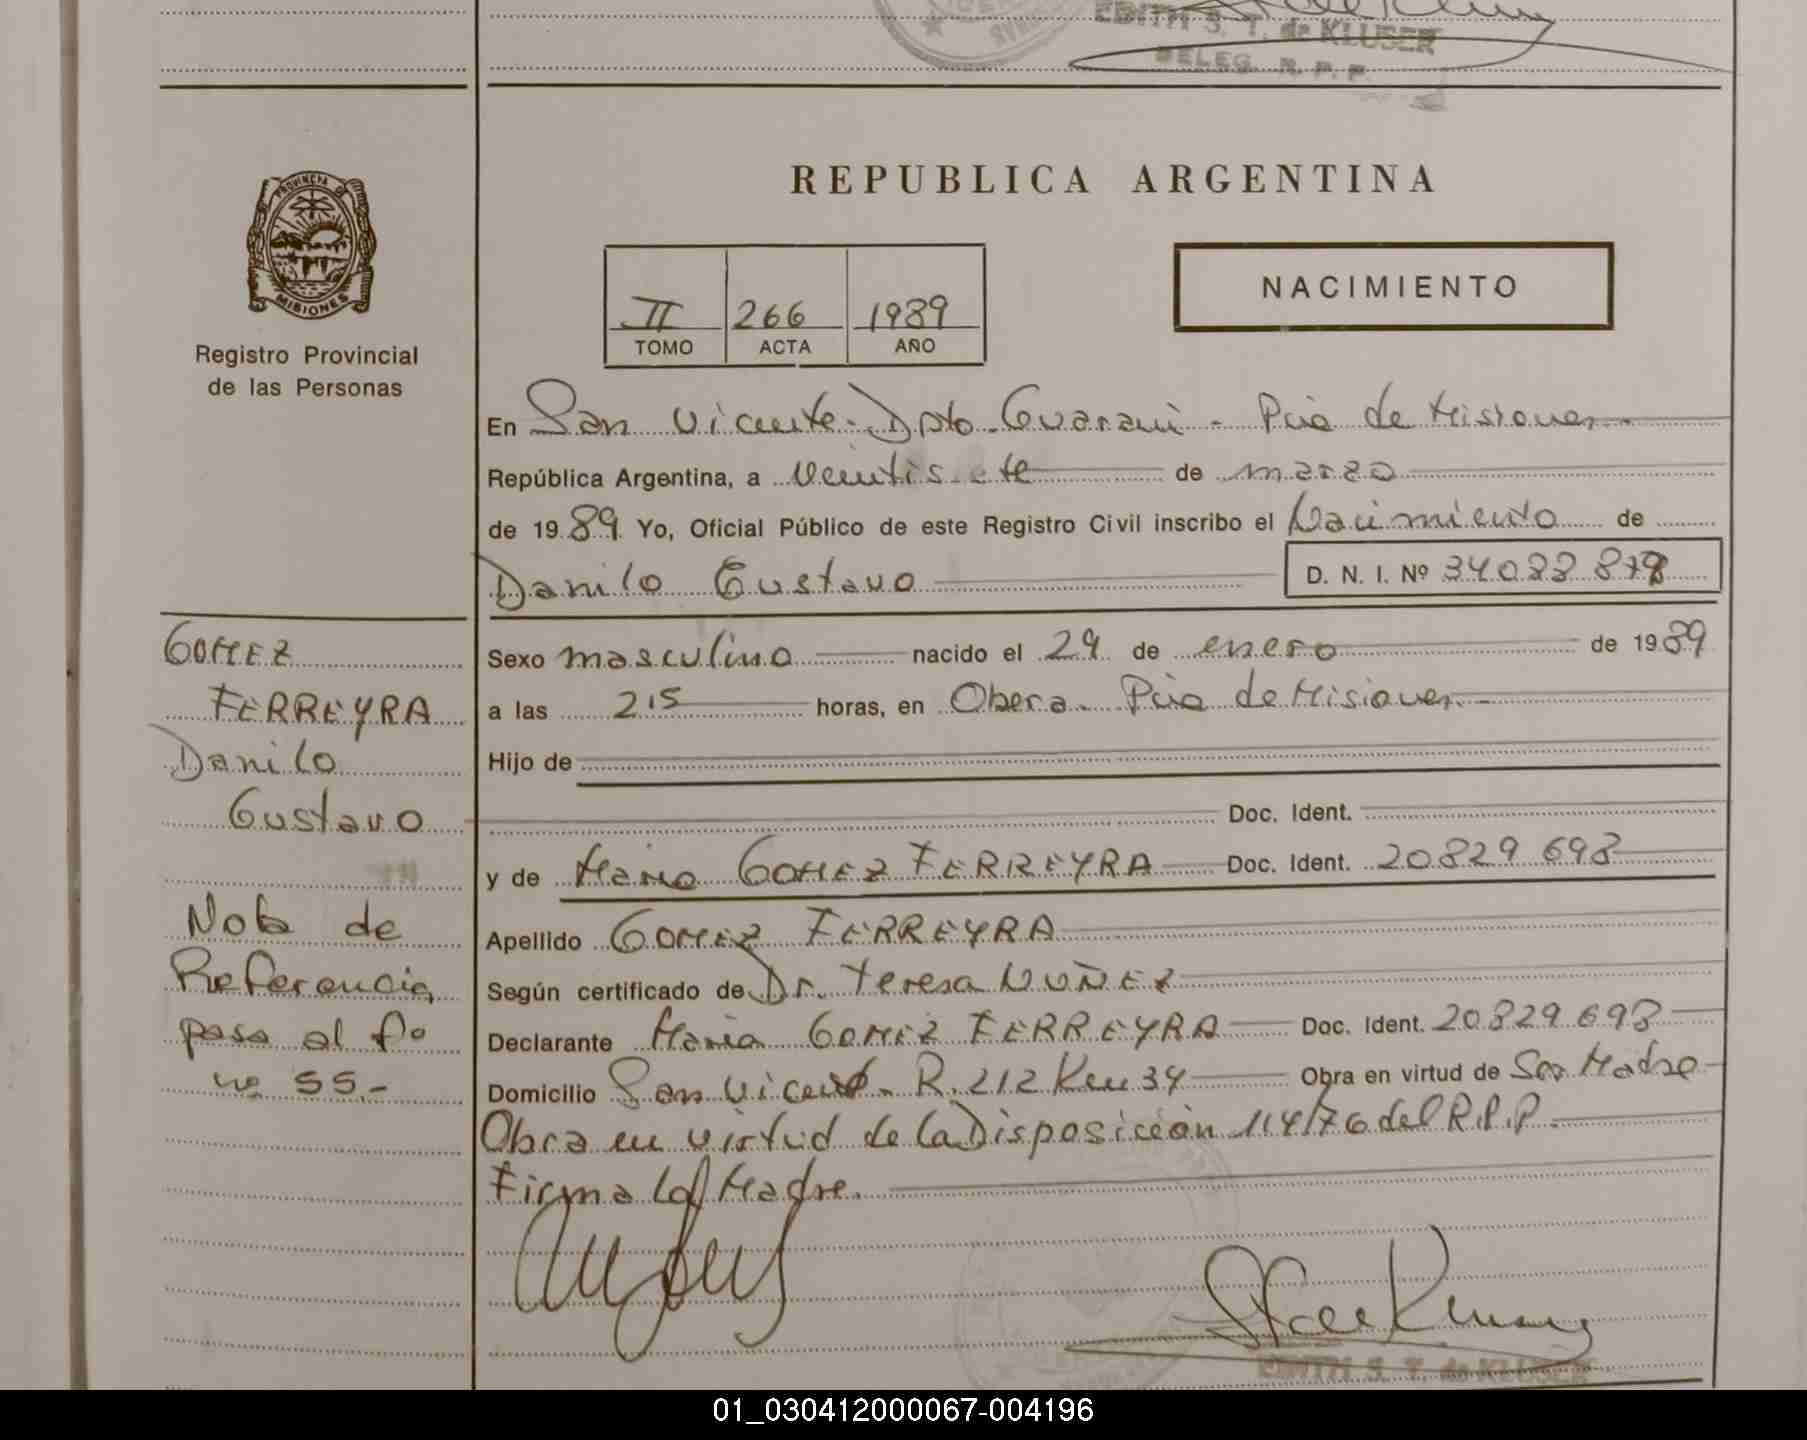 EDITH S. T. de KLUSER
DELEG. R. P. P.
PROVINCIA DE
MISIONES
Registro Provincial
de las Personas
REPUBLICA ARGENTINA
II 266 1989
TOMO ACTA AÑO
NACIMIENTO
En San Vicente - Dpto. Guarani - Pcia de Misiones
República Argentina, a Veintisiete de marzo
de 1989 Yo, Oficial Público de este Registro Civil inscribo el Nacimiento de
Danilo Gustavo D. N. I. Nº 34088 878
GOMEZ
FERREYRA
Danilo
Gustavo
Nota de
Referencia
pasa al fº
nº 55.-
Sexo masculino nacido el 29 de enero de 1989
a las 2 15 horas, en Obera. Pcia de Misiones.-
Hijo de
Doc. Ident.
y de Maria GOMEZ FERREYRA Doc. Ident. 20829 698
Apellido GOMEZ FERREYRA
Según certificado de Dr. Teresa NUÑEZ
Declarante Maria GOMEZ FERREYRA Doc. Ident. 20829 698
Domicilio San Vicente. R. 212 Km 34 Obra en virtud de Ser Madre -
Obra en virtud de la Disposición 114/76 del R.P.P.
Firma la Madre.
EDITH S. T. de KLUSER
01_030412000067-004196